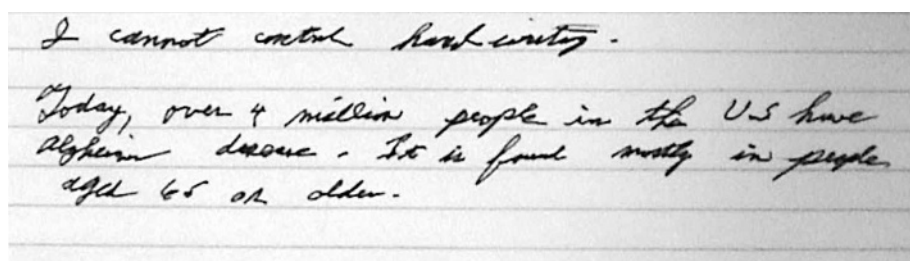 I cannot control handwriting.
Today, over 4 million people in the U.S have
Alzheim disease. It is found mostly in people
aged 65 or older.